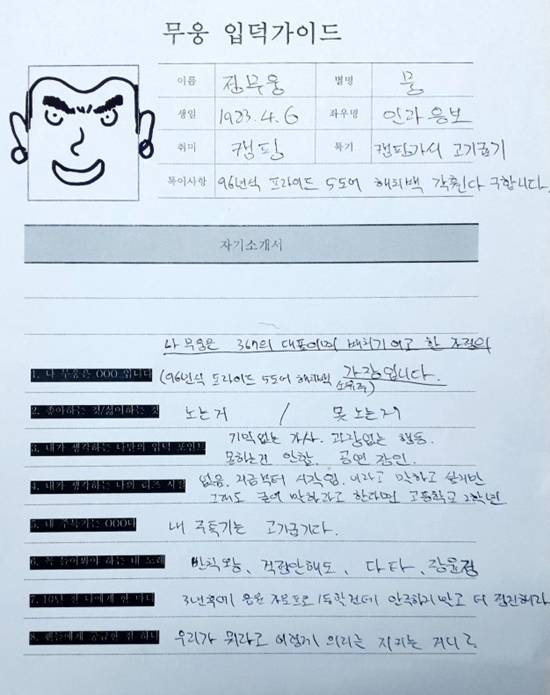 무웅 입덕가이드
이름 장무웅 별명 뭉
생일 1983. 4. 6 좌우명 인과응보
취미 캠핑 특기 캠핑가서 고기굽기
특이사항 96년식 프라이드 5도어 해치백 구합니다.
자기소개서
나 무웅은 367의 대표이며 하고 한 가정의
1. 나 무웅은 OOO 입니다 (96년식 프라이드 5도어 해치백 소유주) 가장입니다.
2. 좋아하는 것/싫어하는 것 노는거 / 못 노는거
3. 내가 생각하는 나만의 입덕 포인트 기억없는 가사. 과장없는 행동.
못하는건 안함. 공연 장인.
4. 내가 생각하는 나의 리즈 시절 없음. 지금부터 시작임. 이라고 말하고 싶지만
그래도 굳이 말하라고 한다면 고등학교 2학년
5. 내 주특기는 OOO다 내 주특기는 고기굽기다.
6. 꼭 들어봐야 하는 내 노래 반학왕, 걱접안해도, 다 타, 장윤정
7. 10년 전 나에게 한 마디 3년후에 음원 차트 1등 안주하지 말고 더 정진해라
8. 팬들에게 궁금한 점 하나 우리가 뭐라고 이렇게 의리는 지키는 거니?